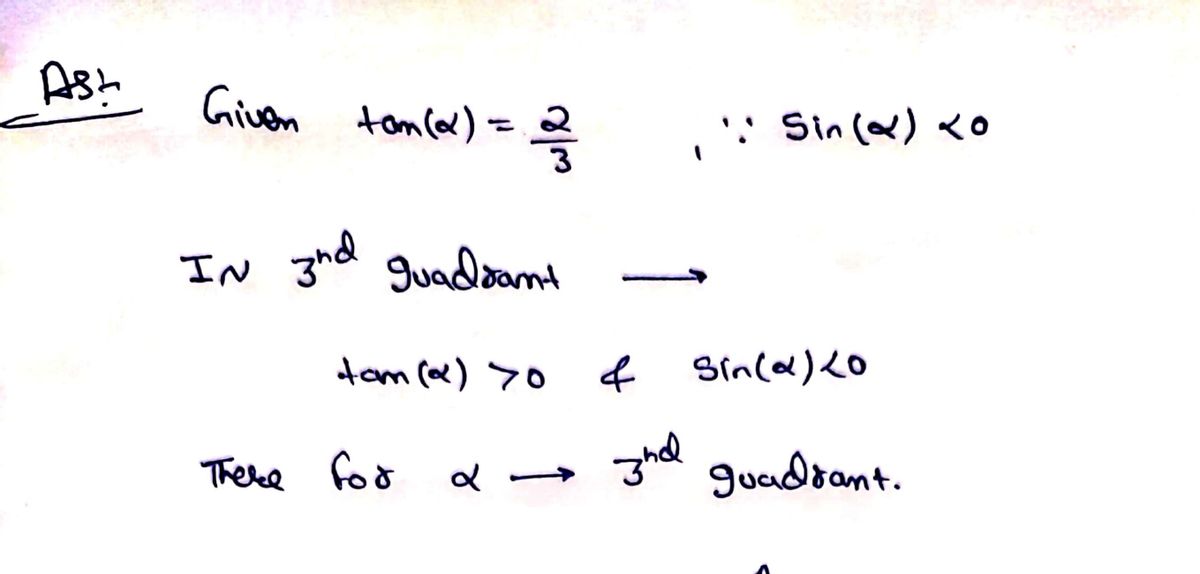 Ans:
Given tan(α) = 2/3 , ∵ Sin(α) <0
IN 3nd quadrant →
tan(α) >0 & Sin(α)<0
There for α → 3nd quadrant.